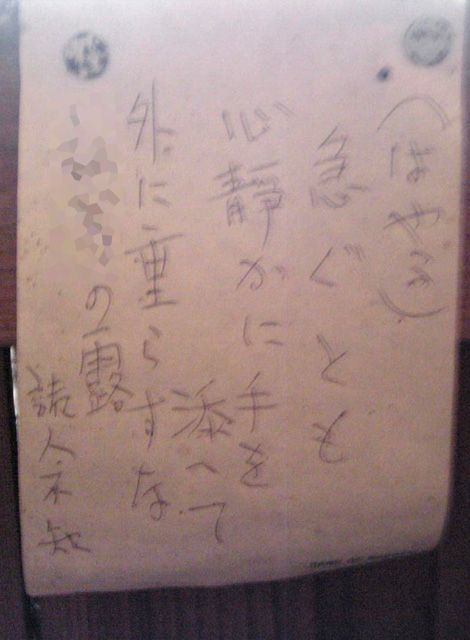 (はやる)
急ぐとも
心静かに手を
添へて
外に垂らすな
の露
読人不知